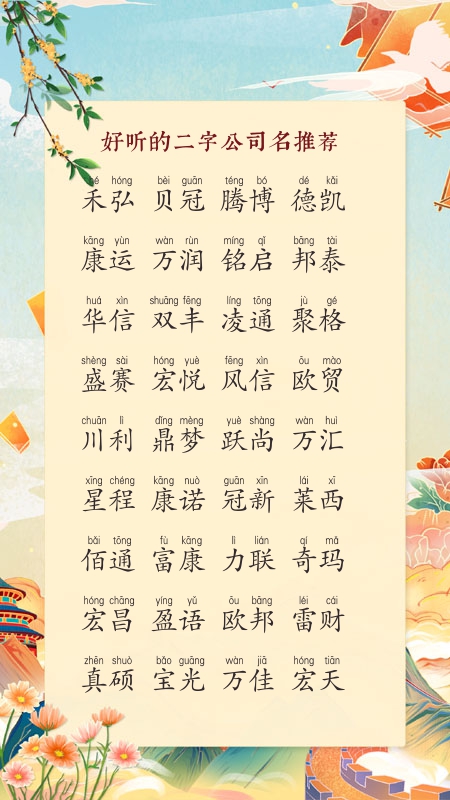 好听的二字公司名推荐
hé hóng bèi guān téng bó dé kǎi
禾弘 贝冠 腾博 德凯
kāng yùn wàn rùn míng qǐ bāng tài
康运 万润 铭启 邦泰
huá xìn shuāng fēng líng tōng jù gé
华信 双丰 凌通 聚格
shèng sài hóng yuè fēng xìn ōu mào
盛赛 宏悦 风信 欧贸
chuān lì dǐng mèng yuè shàng wàn huì
川利 鼎梦 跃尚 万汇
xīng chéng kāng nuò guān xīn lái xī
星程 康诺 冠新 莱西
bǎi tōng fù kāng lì lián qí mǎ
佰通 富康 力联 奇玛
hóng chāng yíng yǔ ōu bāng léi cái
宏昌 盈语 欧邦 雷财
zhēn shuò bǎo guāng wàn jiā hóng tiān
真硕 宝光 万佳 宏天